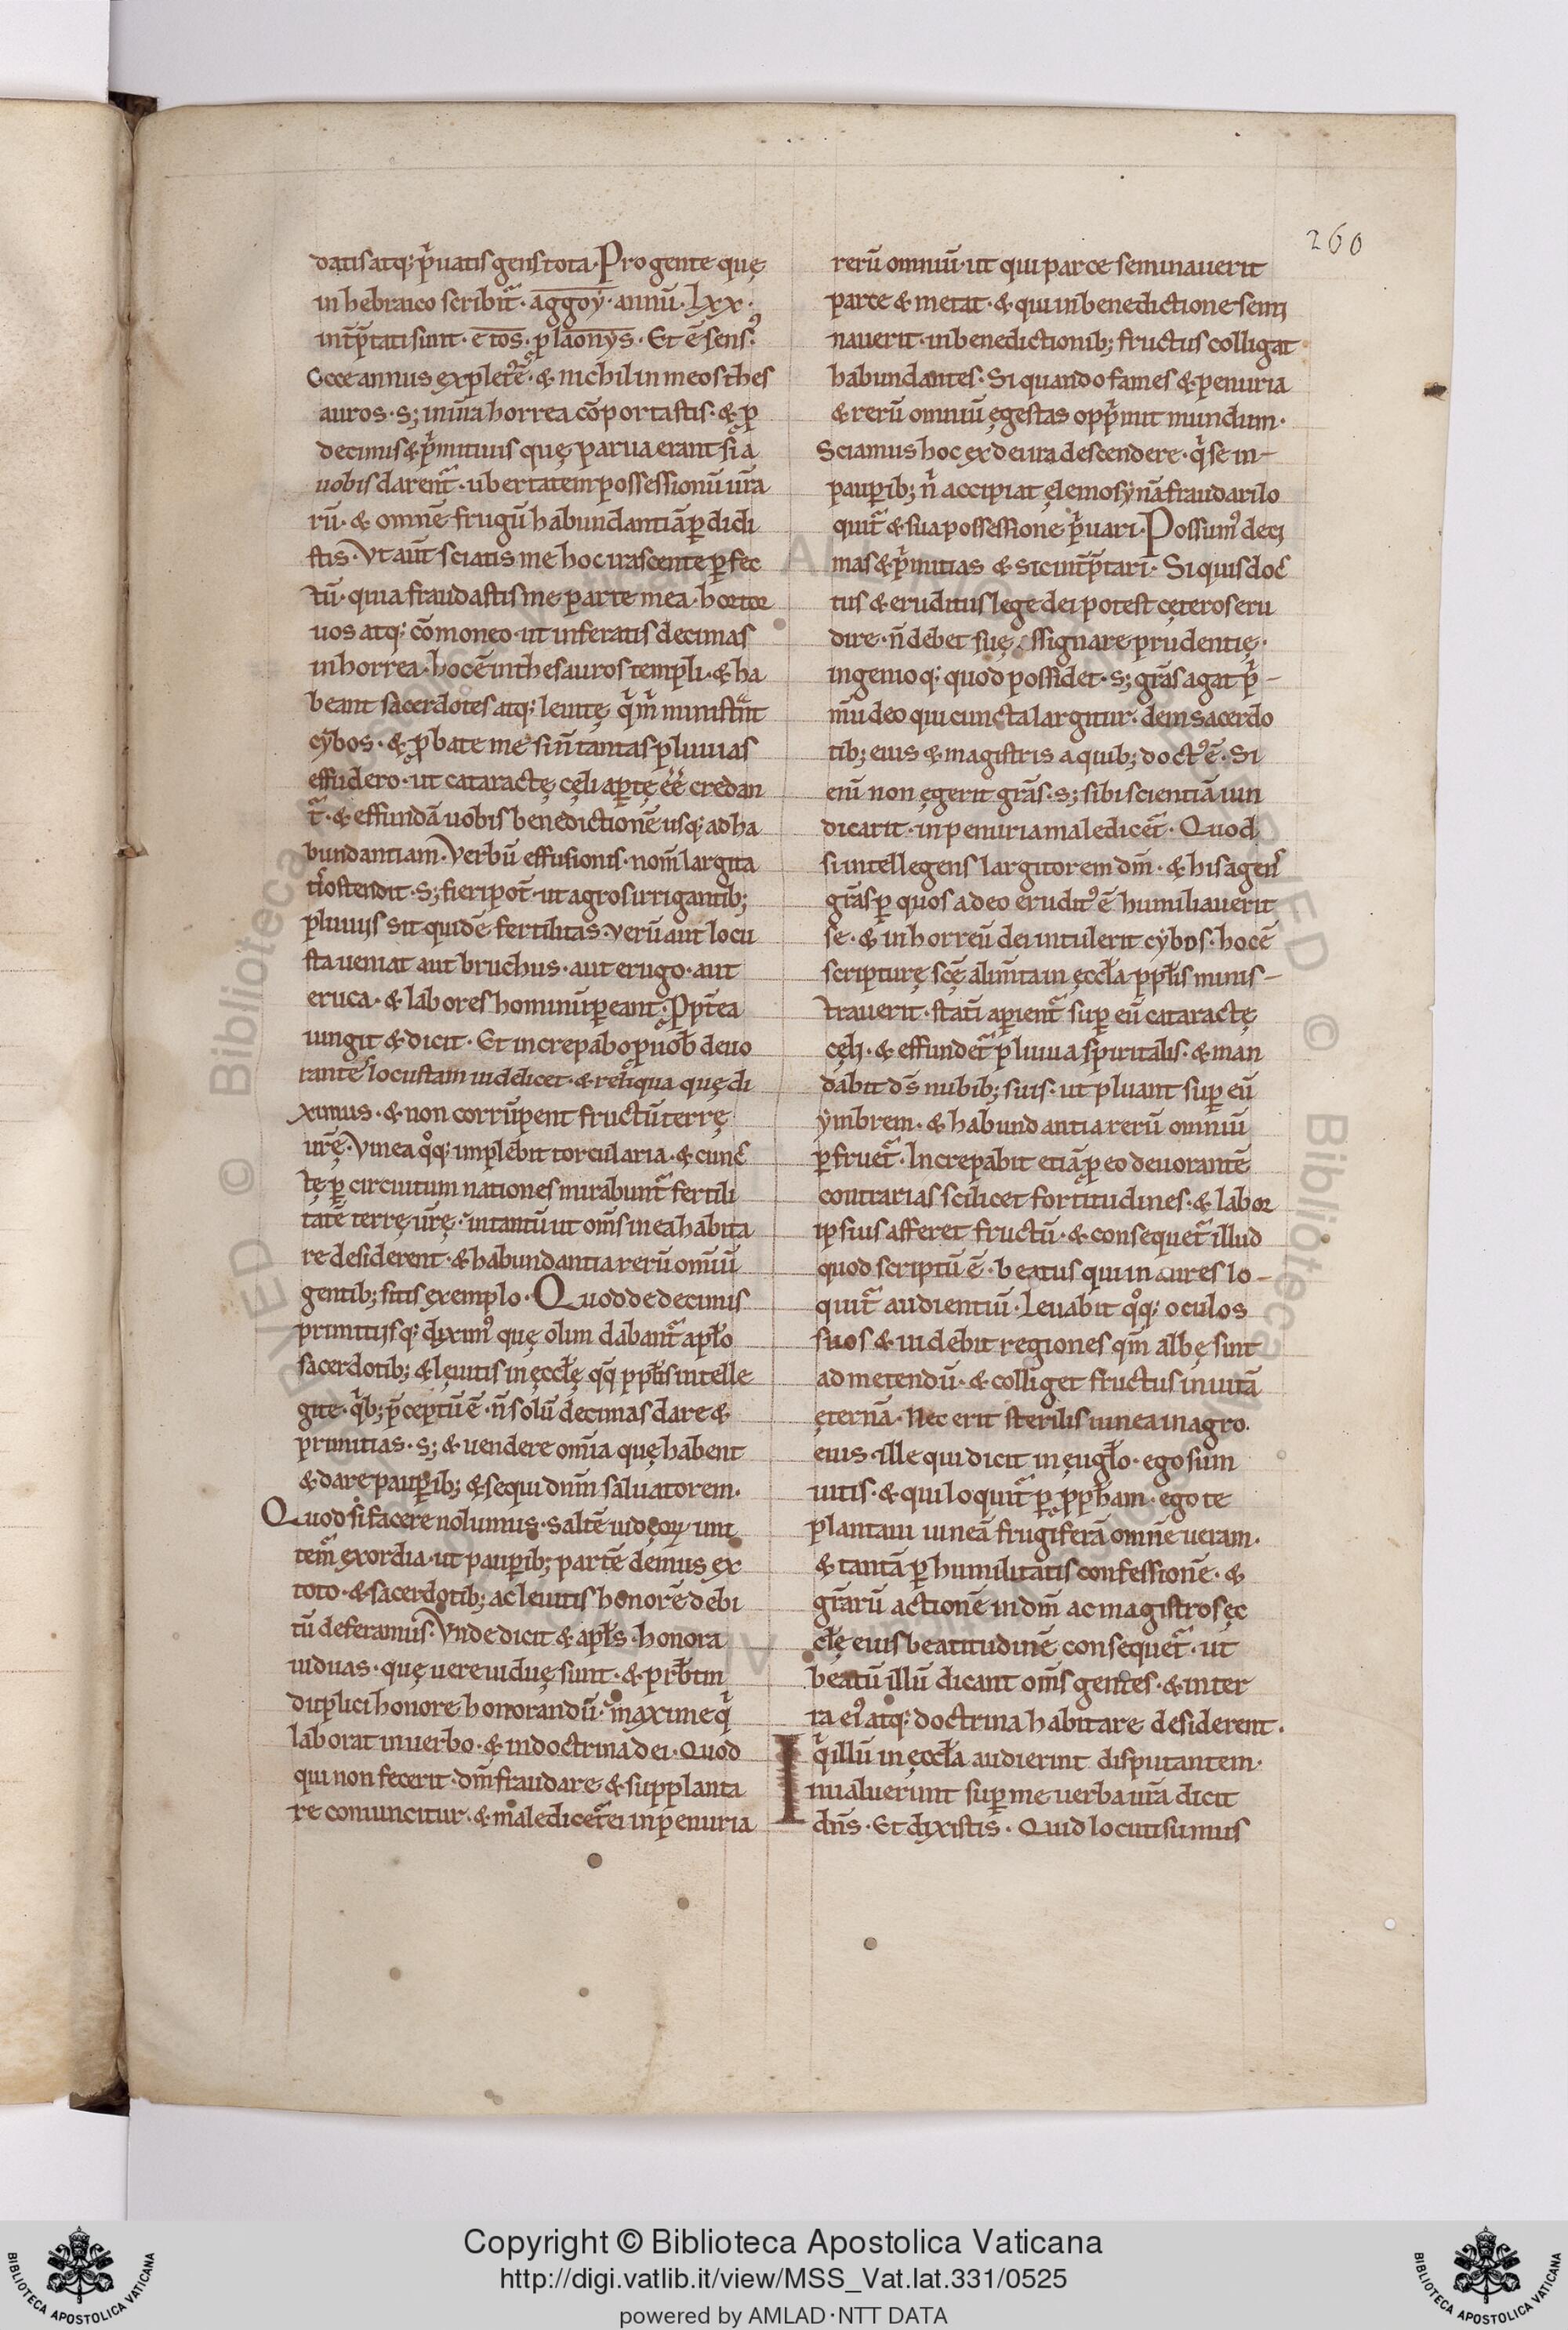 260
datis atq; p̾uatis gens tota. Pro gente quę
in hebraico scribit᷑. aggoy. annū. lxx.
int̄p̄tati sunt. etos. ꝓ laonys. Et ē sens᷒.
Ecce annus expletᷤ ē. & nichil in meos thes
auros. s; in ur̄a horrea cōportastis. & ꝓ
decimis & p̾mitiuis quę parua erant si a
uobis darent᷑. ubertatem possessionū ur̄a
rū. & omnē frugū habundantiā ꝑdidi
stis. Vt aut̄ sciatis me hoc irascente ꝑfec
tū. quia fraudastis me parte mea. hortor
uos atq; cōmoneo. ut inferatis decimas
in horrea. hoc ē in thesauros templi. & ha
beant sacerdotes atq; leuitę q̾ m̾ ministrāt
cybos. & ꝓbate me si n̄ tantas pluuias
effudero. ut cataractę cęli aꝑtę ēē credan
t᷑. & effundā uobis benedictionē usq; ad ha
bundantiam. Verbū effusionis. nom̄ largita
tis ostendit. S; fieri pot̄. ut agros irrigantib;
pluuiis sit quidē fertilitas. uerū aut locu
sta ueniat aut bruchus. aut erugo. aut
eruca. & labores hominū ꝑeant. Ꝓpt̄ea
iungit & dicit. Et increpabo ꝓ uob̄ deuo
rantē locustam uidelicet. & reliqua quę di
ximus. & non corrūpent fructū terrę
ur̄ę. Vinea qͦq; implebit torcularia. & cunc̄
tę ꝑ circuitum nationes mirabunt᷑ fertili
tatē terrę ur̄ę. in tantū ut om̄s in ea habita
re desiderent. & habundantia rerū om̄iū
gentib; sitis exemplo. Quod de decimis
primitiisq; dixim᷒ quę olim dabant᷑ a pplo
sacerdotib; & leuitis in ęccłę qq̄ ppl̄is intelle
gite. q̾b; p̄ceptū ē. n̄ solū decimas dare &
primitias. s; & uendere om̄ia quę habent
& dare pauꝑib; & sequi dn̄m saluatorem.
Quod si facere nolumus. saltē iudęoꝝ imi
tem᷑ exordia. ut pauꝑib; partē demus ex
toto. & sacerdotib; ac leuitis honorē debi
tū deferamus. Vnde dicit & apl̄s. honora
uiduas. quę uere uiduę sunt. & prb̄tm
duplici honore honorandū. maxime q̾
laborat in uerbo. & in doctrina dei. Quod
qui non fecerit. dm̄ fraudare & supplanta
re conuincitur. & maledicet᷑ ei in penuria
rerū omniū. ut qui parce seminauerit
parce & metat. & qui in benedictione semi
nauerit. in benedictionib; fructus colligat
habundantes. Si quando fames & penuria
& rerū omniū ęgestas opp̾mit mundum.
Sciamus hoc ex dei ira descendere. q̾ se in-
pauꝑib; n̾ accipiat ęlemosynā fraudari lo
quit᷑ & sua possessione p̾uari. Possum᷒ deci
mas & p̾mitias & sic int̄p̄tari. Si quis doc̄
tus & eruditus lege dei potest cęteros eru
dire. n̄ debet suę assignare prudentię.
ingenioq; quod possidet. s; grās agat p̾-
mū deo qui cuncta largitur. dein sacerdo
tib; eius & magistris a quib; doct᷒ ē. Si
enī non ęgerit grās. s; sibi scientiā uin
dicarit. in penuria maledicet᷑. Quod
si intellegens largitorem dm̄. & his agens
grās ꝑ quos a deo erudit᷒ ē humiliauerit
se. & in horreū dei intulerit cybos. hoc ē
scripturę scę̄ alim̄ta in ęccł̄a ppl̄is minis-
trauerit. statī aꝑient᷑ suꝑ eū cataractę
cęli. & effundet᷑ pluuia spiritalis. & man
dabit ds̄ nubib; suis. ut pluant suꝑ eū
ymbrem. & habundantia rerū omniū
ꝑfruet᷑. Increpabit etiā ꝓ eo deuorantē
contrarias scilicet fortitudines. & labor
ipsius afferet fructū. & consequet᷑ illud
quod scriptū ē. beatus qui in aures lo-
quit᷑ audientiū. Leuabit qͦq; oculos
suos & uidebit regiones qm̄ albę sunt
ad metendū. & colliget fructus in uitā
ęternā. Nec erit sterilis uinea in agro.
eius. ille qui dicit in ęugł̄o. ego sum
uitis. & qui loquit᷑ ꝑ ꝓpham. ego te
plantaui uineā frugiferā omnē ueram.
& tantā ꝑ humilitatis confessionē. &
grārū actionē in dm̄ ac magistros ęc
cł̄ę eius beatitudinē consequet᷑. ut
beatū illū dicant om̄s gentes. & in ter
ra ei᷒ atq; doctrina habitare desiderent.
q̾ illū in ęccł̄a audierint disputantem.
Inualuerunt suꝑ me uerba ur̄a dicit
dn̄s. Et dixistis. Quid locuti sumus
Copyright © Biblioteca Apostolica Vaticana
http://digi.vatlib.it/view/MSS_Vat.lat.331/0525
powered by AMLAD·NTT DATA
BIBLIOTECA APOSTOLICA VATICANA
BIBLIOTECA APOSTOLICA VATICANA